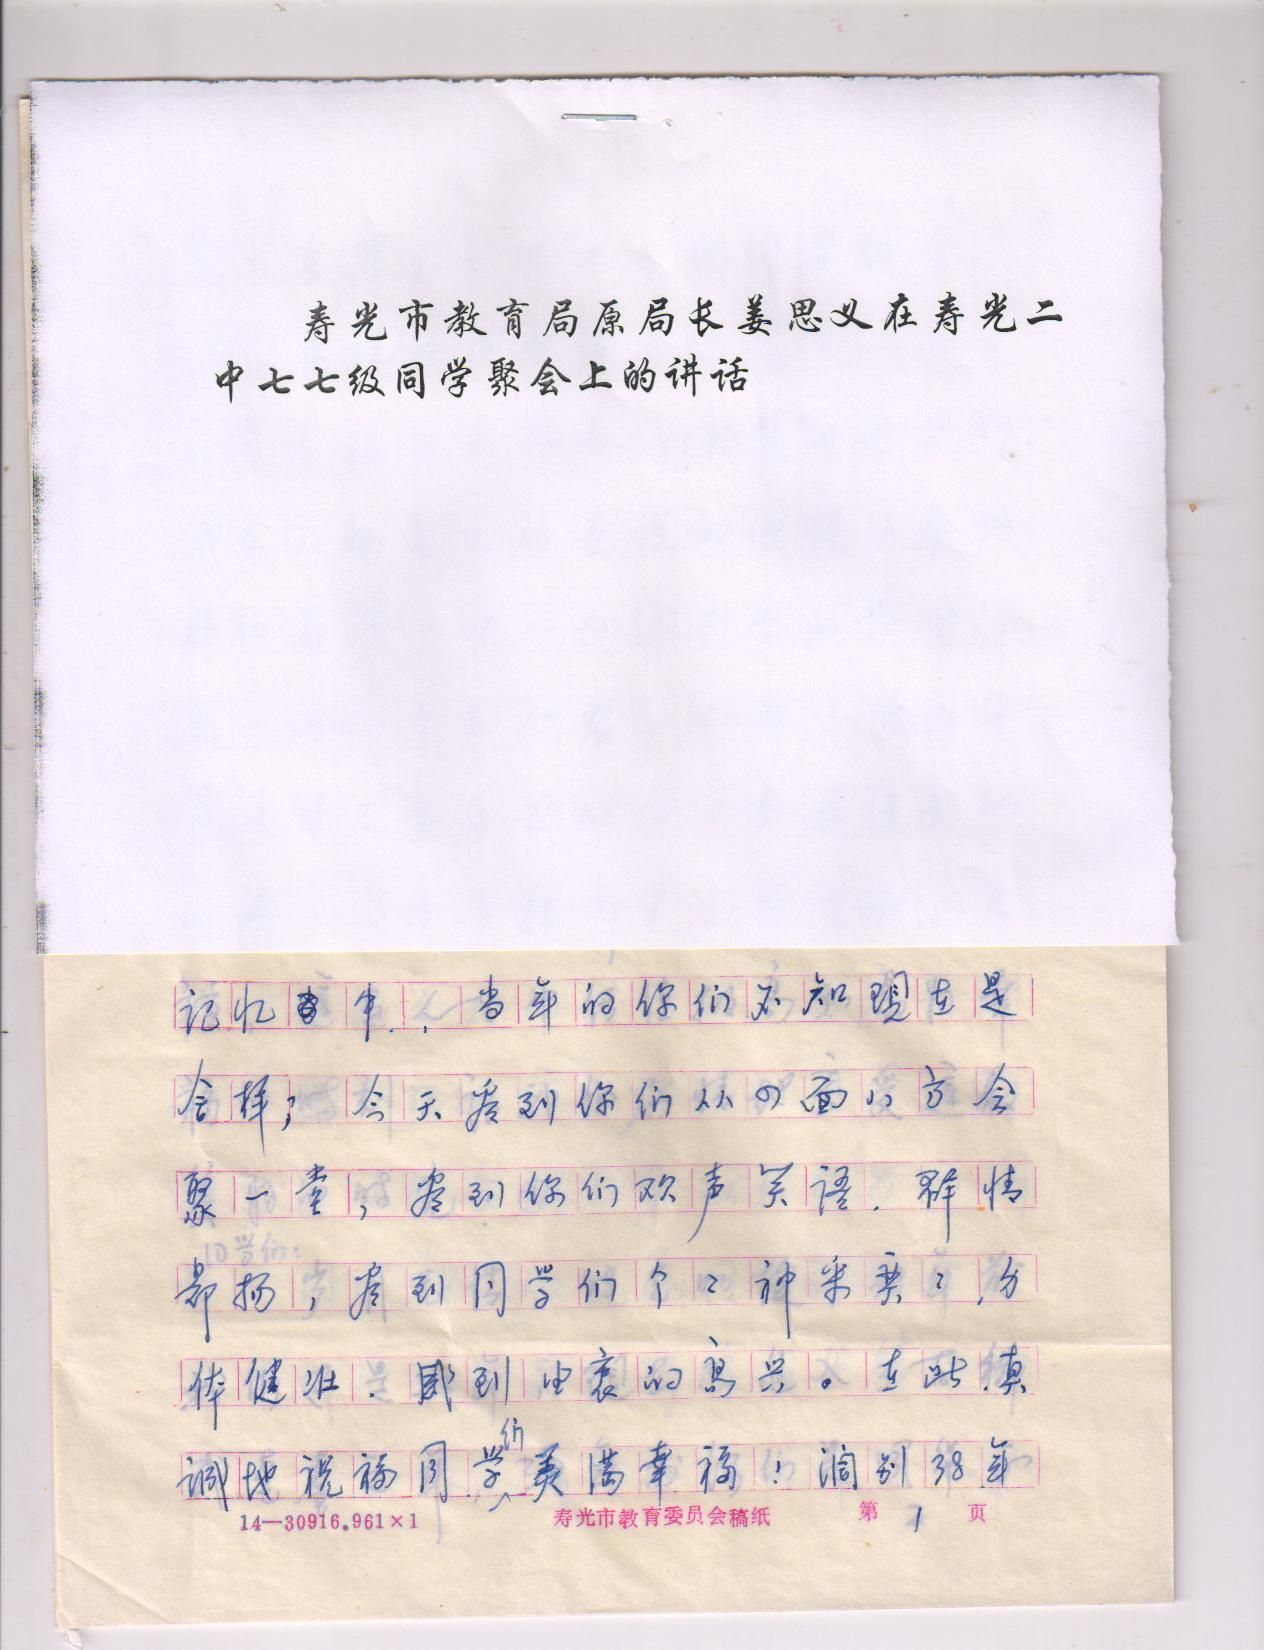 寿光市教育局原局长姜思义在寿光二
中七七级同学聚会上的讲话
记忆中，当年的你们不知现在是
会样；今天看到你们从四面八方会
聚一堂，看到你们欢声笑语、群情
昂扬，看到同学们个々神采奕々，身
体健壮、感到由衷的高兴。在此真
诚地祝福同学们美满幸福！阔别38年
14—30916.961×1 寿光市教育委员会稿纸 第 1 页